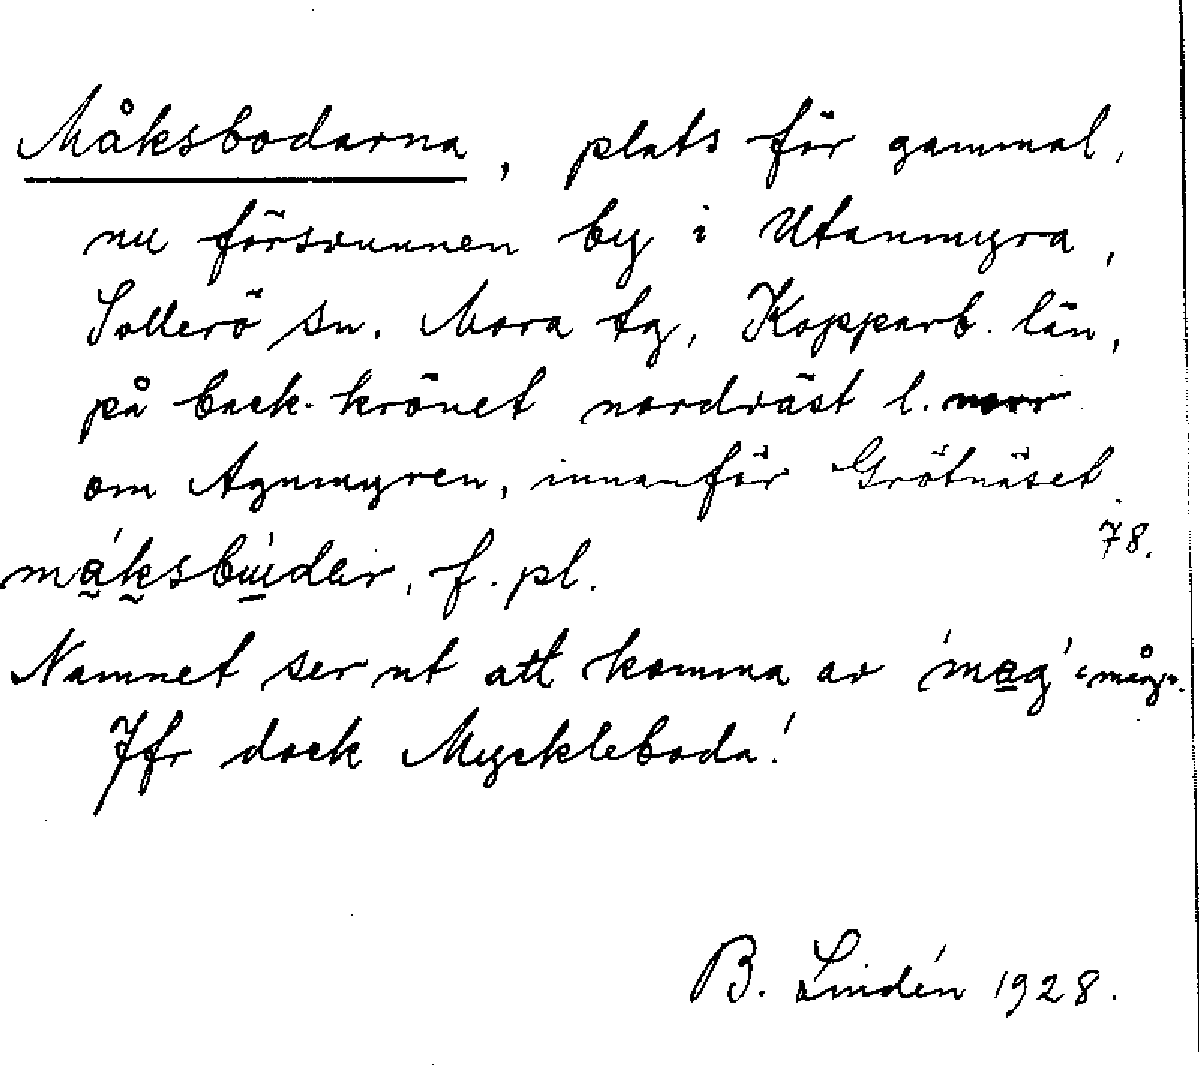 Måksbodarna, plats för gammal,
nu försvunnen by i Utanmyra,
Sollerö sn. Mora tg, Kopparb. län,
på back-krönet nordväst l. norr
om Agnmyren, innanför Grötnäset
78.
måksbuder, f. pl.
Namnet ser ut att komma av 'mag' "måg".
Jfr dock Myckleboda!
B. Lindén 1928.